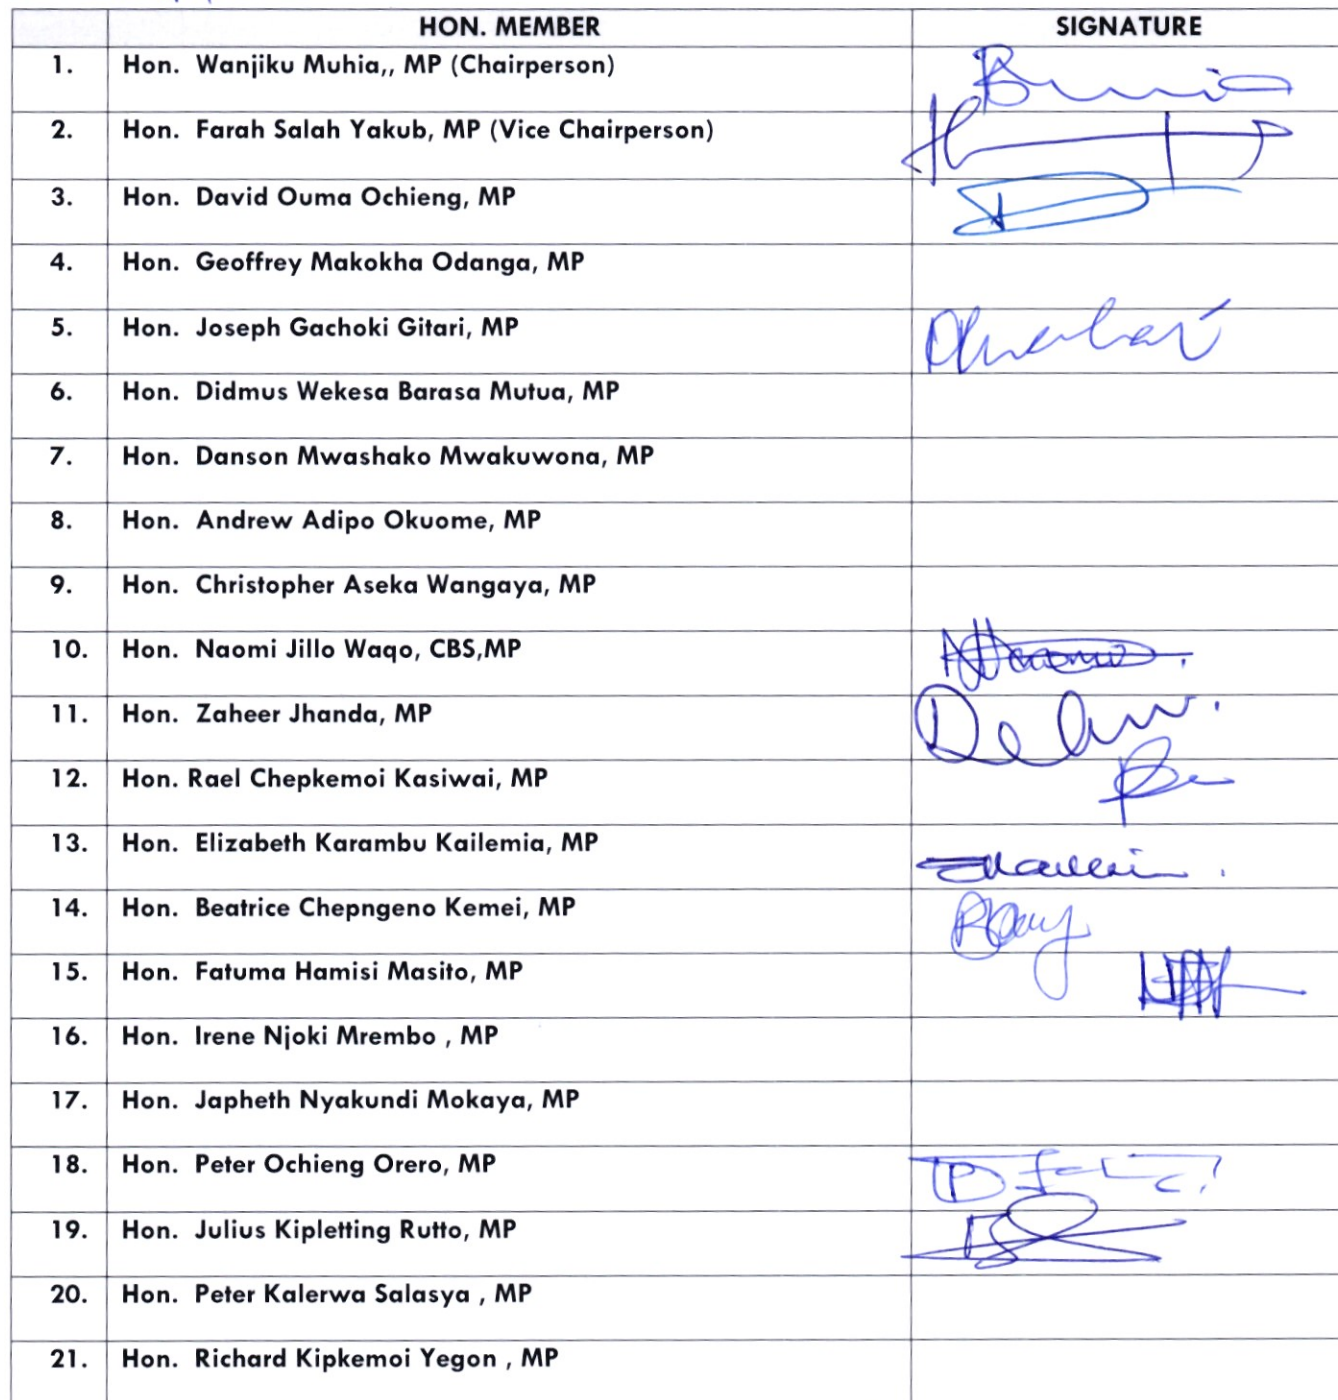 HON. MEMBER SIGNATURE
1. Hon. Wanjiku Muhia,, MP (Chairperson)
2. Hon. Farah Salah Yakub, MP (Vice Chairperson)
3. Hon. David Ouma Ochieng, MP
4. Hon. Geoffrey Makokha Odanga, MP
5. Hon. Joseph Gachoki Gitari, MP
6. Hon. Didmus Wekesa Barasa Mutua, MP
7. Hon. Danson Mwashako Mwakuwona, MP
8. Hon. Andrew Adipo Okuome, MP
9. Hon. Christopher Aseka Wangaya, MP
10. Hon. Naomi Jillo Waqo, CBS,MP
11. Hon. Zaheer Jhanda, MP
12. Hon. Rael Chepkemoi Kasiwai, MP
13. Hon. Elizabeth Karambu Kailemia, MP
14. Hon. Beatrice Chepngeno Kemei, MP
15. Hon. Fatuma Hamisi Masito, MP
16. Hon. Irene Njoki Mrembo , MP
17. Hon. Japheth Nyakundi Mokaya, MP
18. Hon. Peter Ochieng Orero, MP
19. Hon. Julius Kipletting Rutto, MP
20. Hon. Peter Kalerwa Salasya , MP
21. Hon. Richard Kipkemoi Yegon , MP